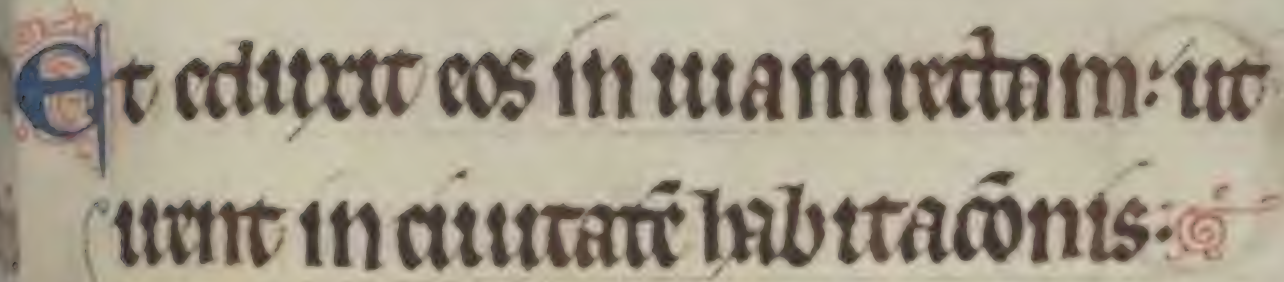 Et eduxit eos in uiam rectam: ut
irent in ciuitatē habitacōnis.